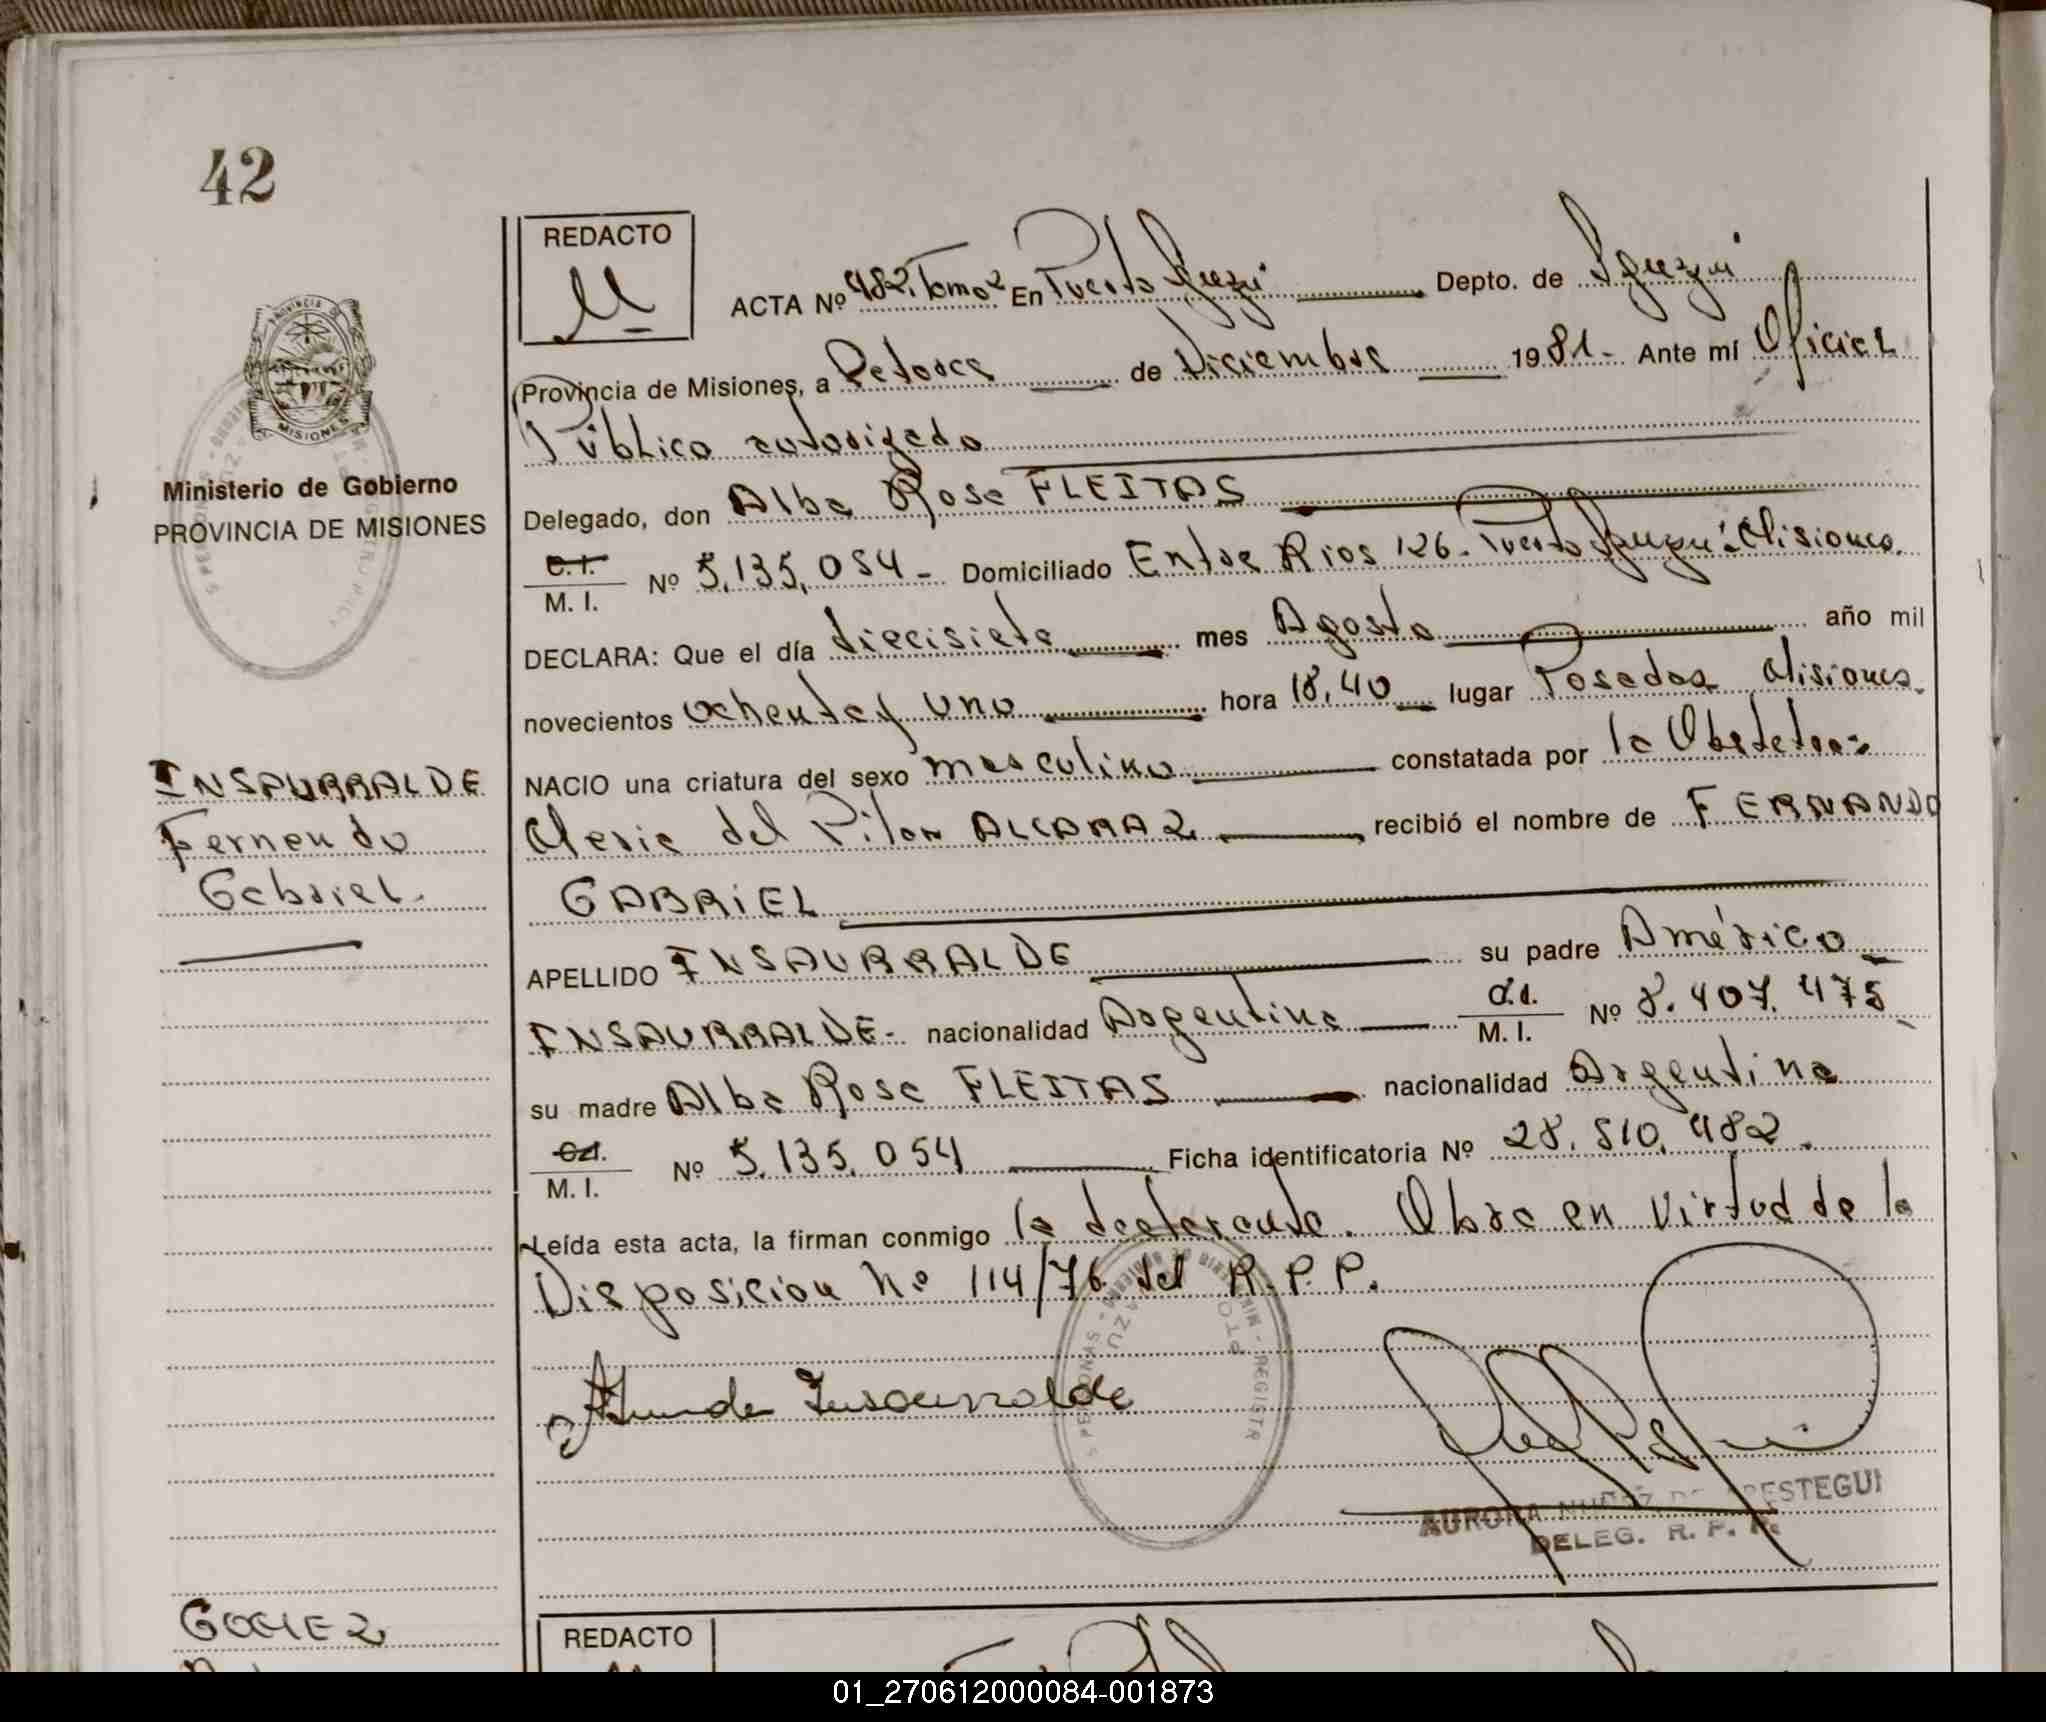 42
REDACTO
ACTA Nº 482. Tomo 2 En Puerto Iguazú Depto. de Iguazú
Provincia de Misiones, a Catorce de Diciembre 1981- Ante mí Oficial
Público autorizado
Delegado, don Alba Rosa FLEITAS
C. I.
M. I. Nº 5.135.054- Domiciliado Entre Rios 126- Puerto Iguazú-Misiones.
DECLARA: Que el día diecisiete mes Agosto año mil
novecientos ochenta y uno hora 18,40 lugar Posadas Misiones.
NACIO una criatura del sexo masculino constatada por la Obstetra
Maria del Pilar ALCARAZ recibió el nombre de FERNANDO
GABRIEL
APELLIDO INSAURRALDE su padre Américo
INSAURRALDE- nacionalidad Argentina M. I. Nº 8.407.475
su madre Alba Rosa FLEITAS nacionalidad Argentina
C.I.
M. I. Nº 5.135.054 Ficha identificatoria Nº 28.510.482.
Leída esta acta, la firman conmigo la declarante. Obra en virtud de la
Disposicion Nº 114/76 del R.P.P.
Insaurralde
AURORA NUÑEZ DE ESTEGUI
DELEG. R. P. P.
PROVINCIA DE
MISIONES
Ministerio de Gobierno
PROVINCIA DE MISIONES
INSAURRALDE
Fernando
Gabriel.
GOMEZ
REDACTO
01_270612000084-001873